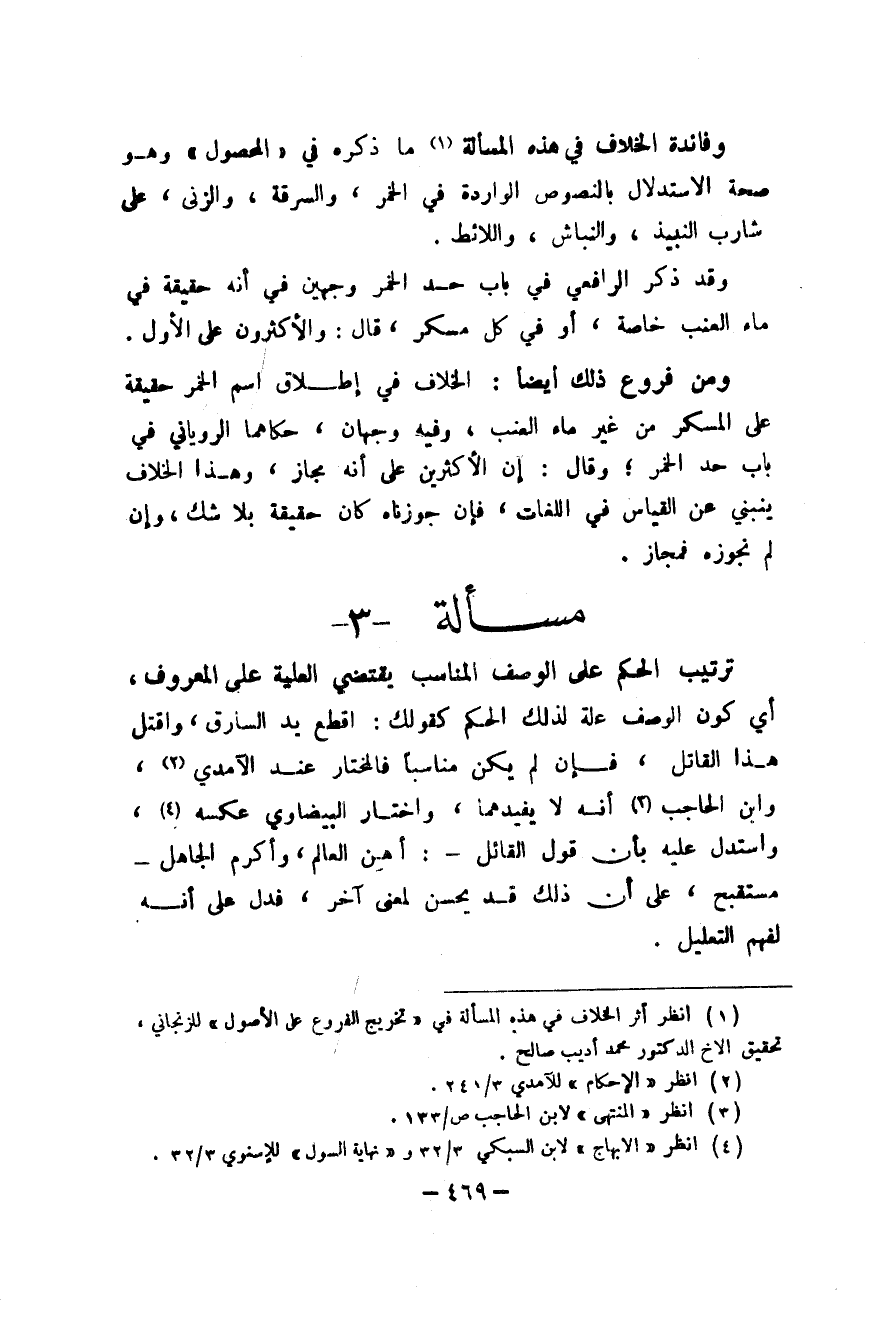 وفائدة الخلاف في هذه المسألة (١) ما ذكره في « المحصول » وهـو
صحة الاستدلال بالنصوص الواردة في الخمر ، والسرقة ، والزنى ، على
شارب النبيذ ، والنباش ، واللائط .
وقد ذكر الرافعي في باب حـد الخمر وجهين في أنه حقيقة في
ماء العنب خاصة ، أو في كل مسكر ، قال : والأكثرون على الأول .
ومن فروع ذلك أيضاً : الخلاف في إطـلاق اسم الخمر حقيقة
على المسكر من غير ماء العنب ، وفيه وجهان ، حكاهما الروياني في
باب حد الخمر ؛ وقال : إن الأكثرين على أنه مجاز ، وهـذا الخلاف
ينبني عن القياس في اللغات ، فإن جوزناه كان حقيقة بلا شك ، وإن
لم نجوزه فمجاز .
مسـألة -٣-
ترتيب الحكم على الوصف المناسب يقتضي العلية على المعروف ،
أي كون الوصف علة لذلك الحكم كقولك : اقطع يد السارق ، واقتل
هـذا القاتل ، فـإن لم يكن مناسباً فالمختار عنـد الآمدي (٢) ،
وابن الحاجب (٣) أنـه لا يفيدهما ، واختـار البيضاوي عكسه (٤) ،
واستدل عليه بأن قول القائل – : أهن العالم ، وأكرم الجاهل –
مستقبح ، على أن ذلك قـد يحسن لمعنى آخر ، فدل على أنـه
لفهم التعليل .
(١) انظر أثر الخلاف في هذه المسألة في « تخريج الفروع على الأصول » للزنجاني ،
تحقيق الاخ الدكتور محمد أديب صالح .
(٢) انظر « الإحكام » للآمدي ٢٤١/٣ .
(٣) انظر « المنتهى » لابن الحاجب ص/١٣٣ .
(٤) انظر « الابهاج » لابن السبكي ٣٢/٣ و « نهاية السول » للإسنوي ٣٢/٣ .
– ٤٦٩ –